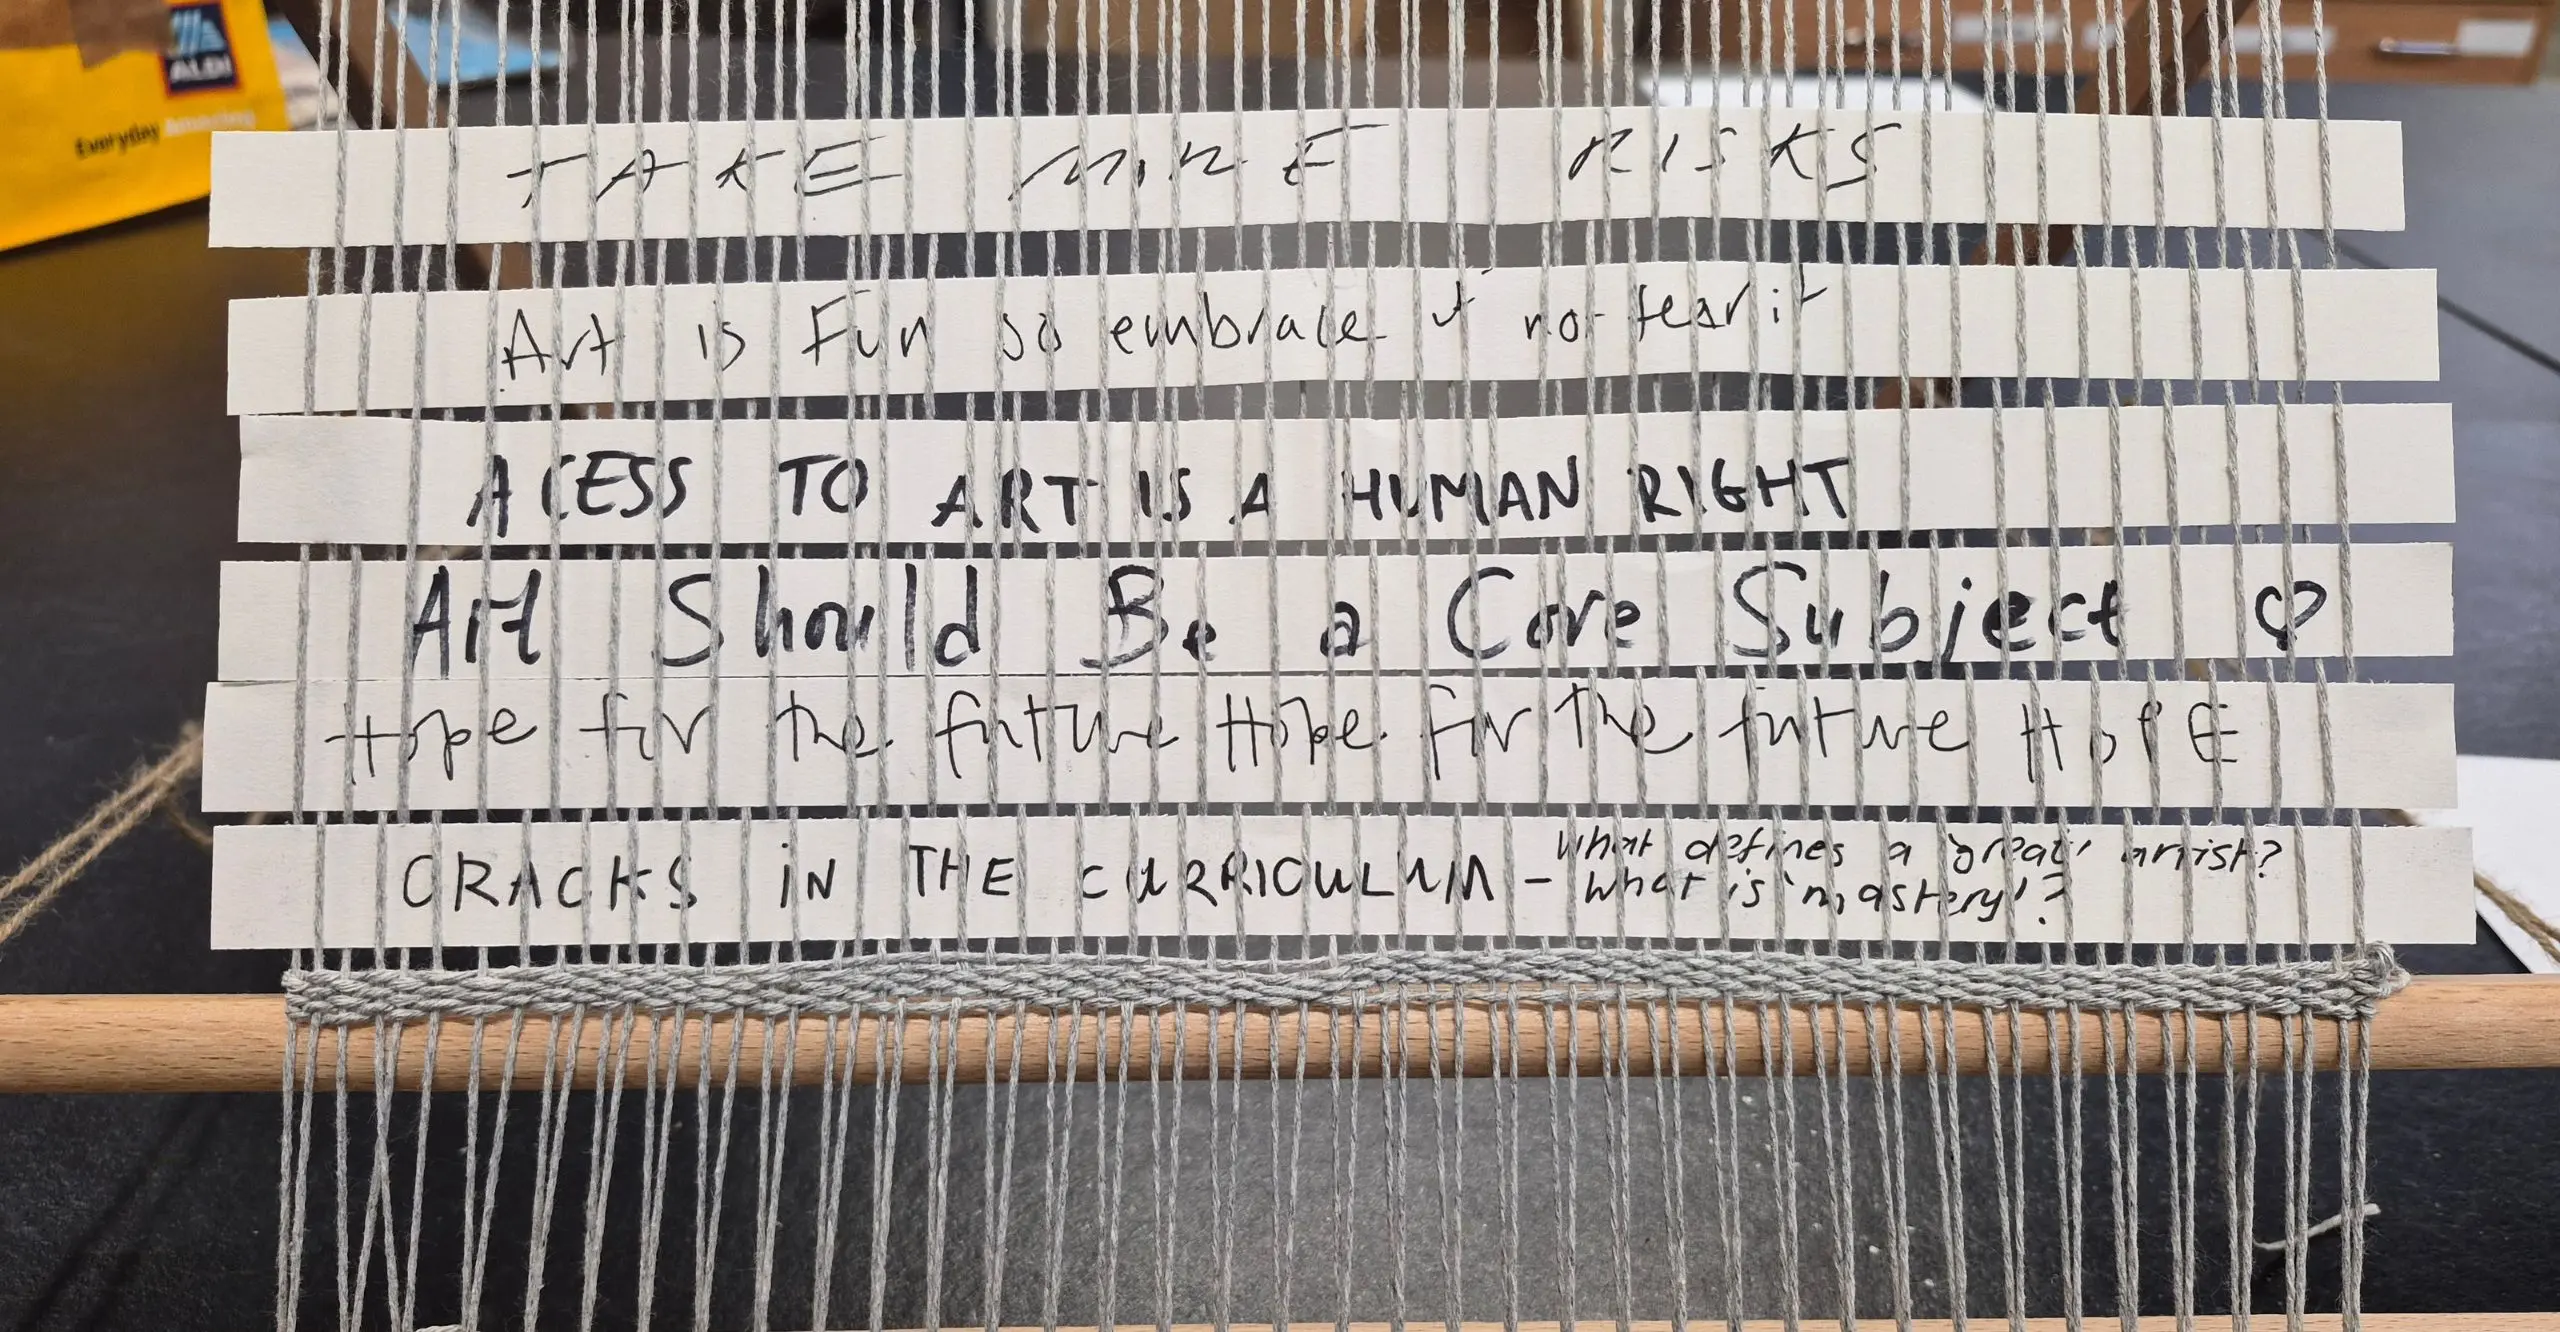 ALDI
Everyday Amazing
TAKE MORE RISKS
Art is Fun so embrace it not fear it
ACESS TO ART IS A HUMAN RIGHT
Art Should Be a Core Subject ♡
Hope for the future Hope for the future HOPE
CRACKS IN THE CURRICULUM - what defines a 'great' artist?
what is 'mastery'?